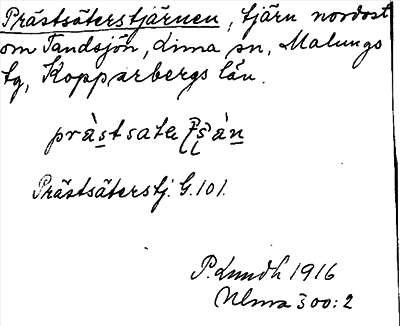 Prästsäterstjärnen, tjärn nordost
om Tandsjön, Lima sn, Malungs
tg, Kopparbergs län.
Prästsäterstj. G.101.
P. Lundh 1916
Ulma 300:2